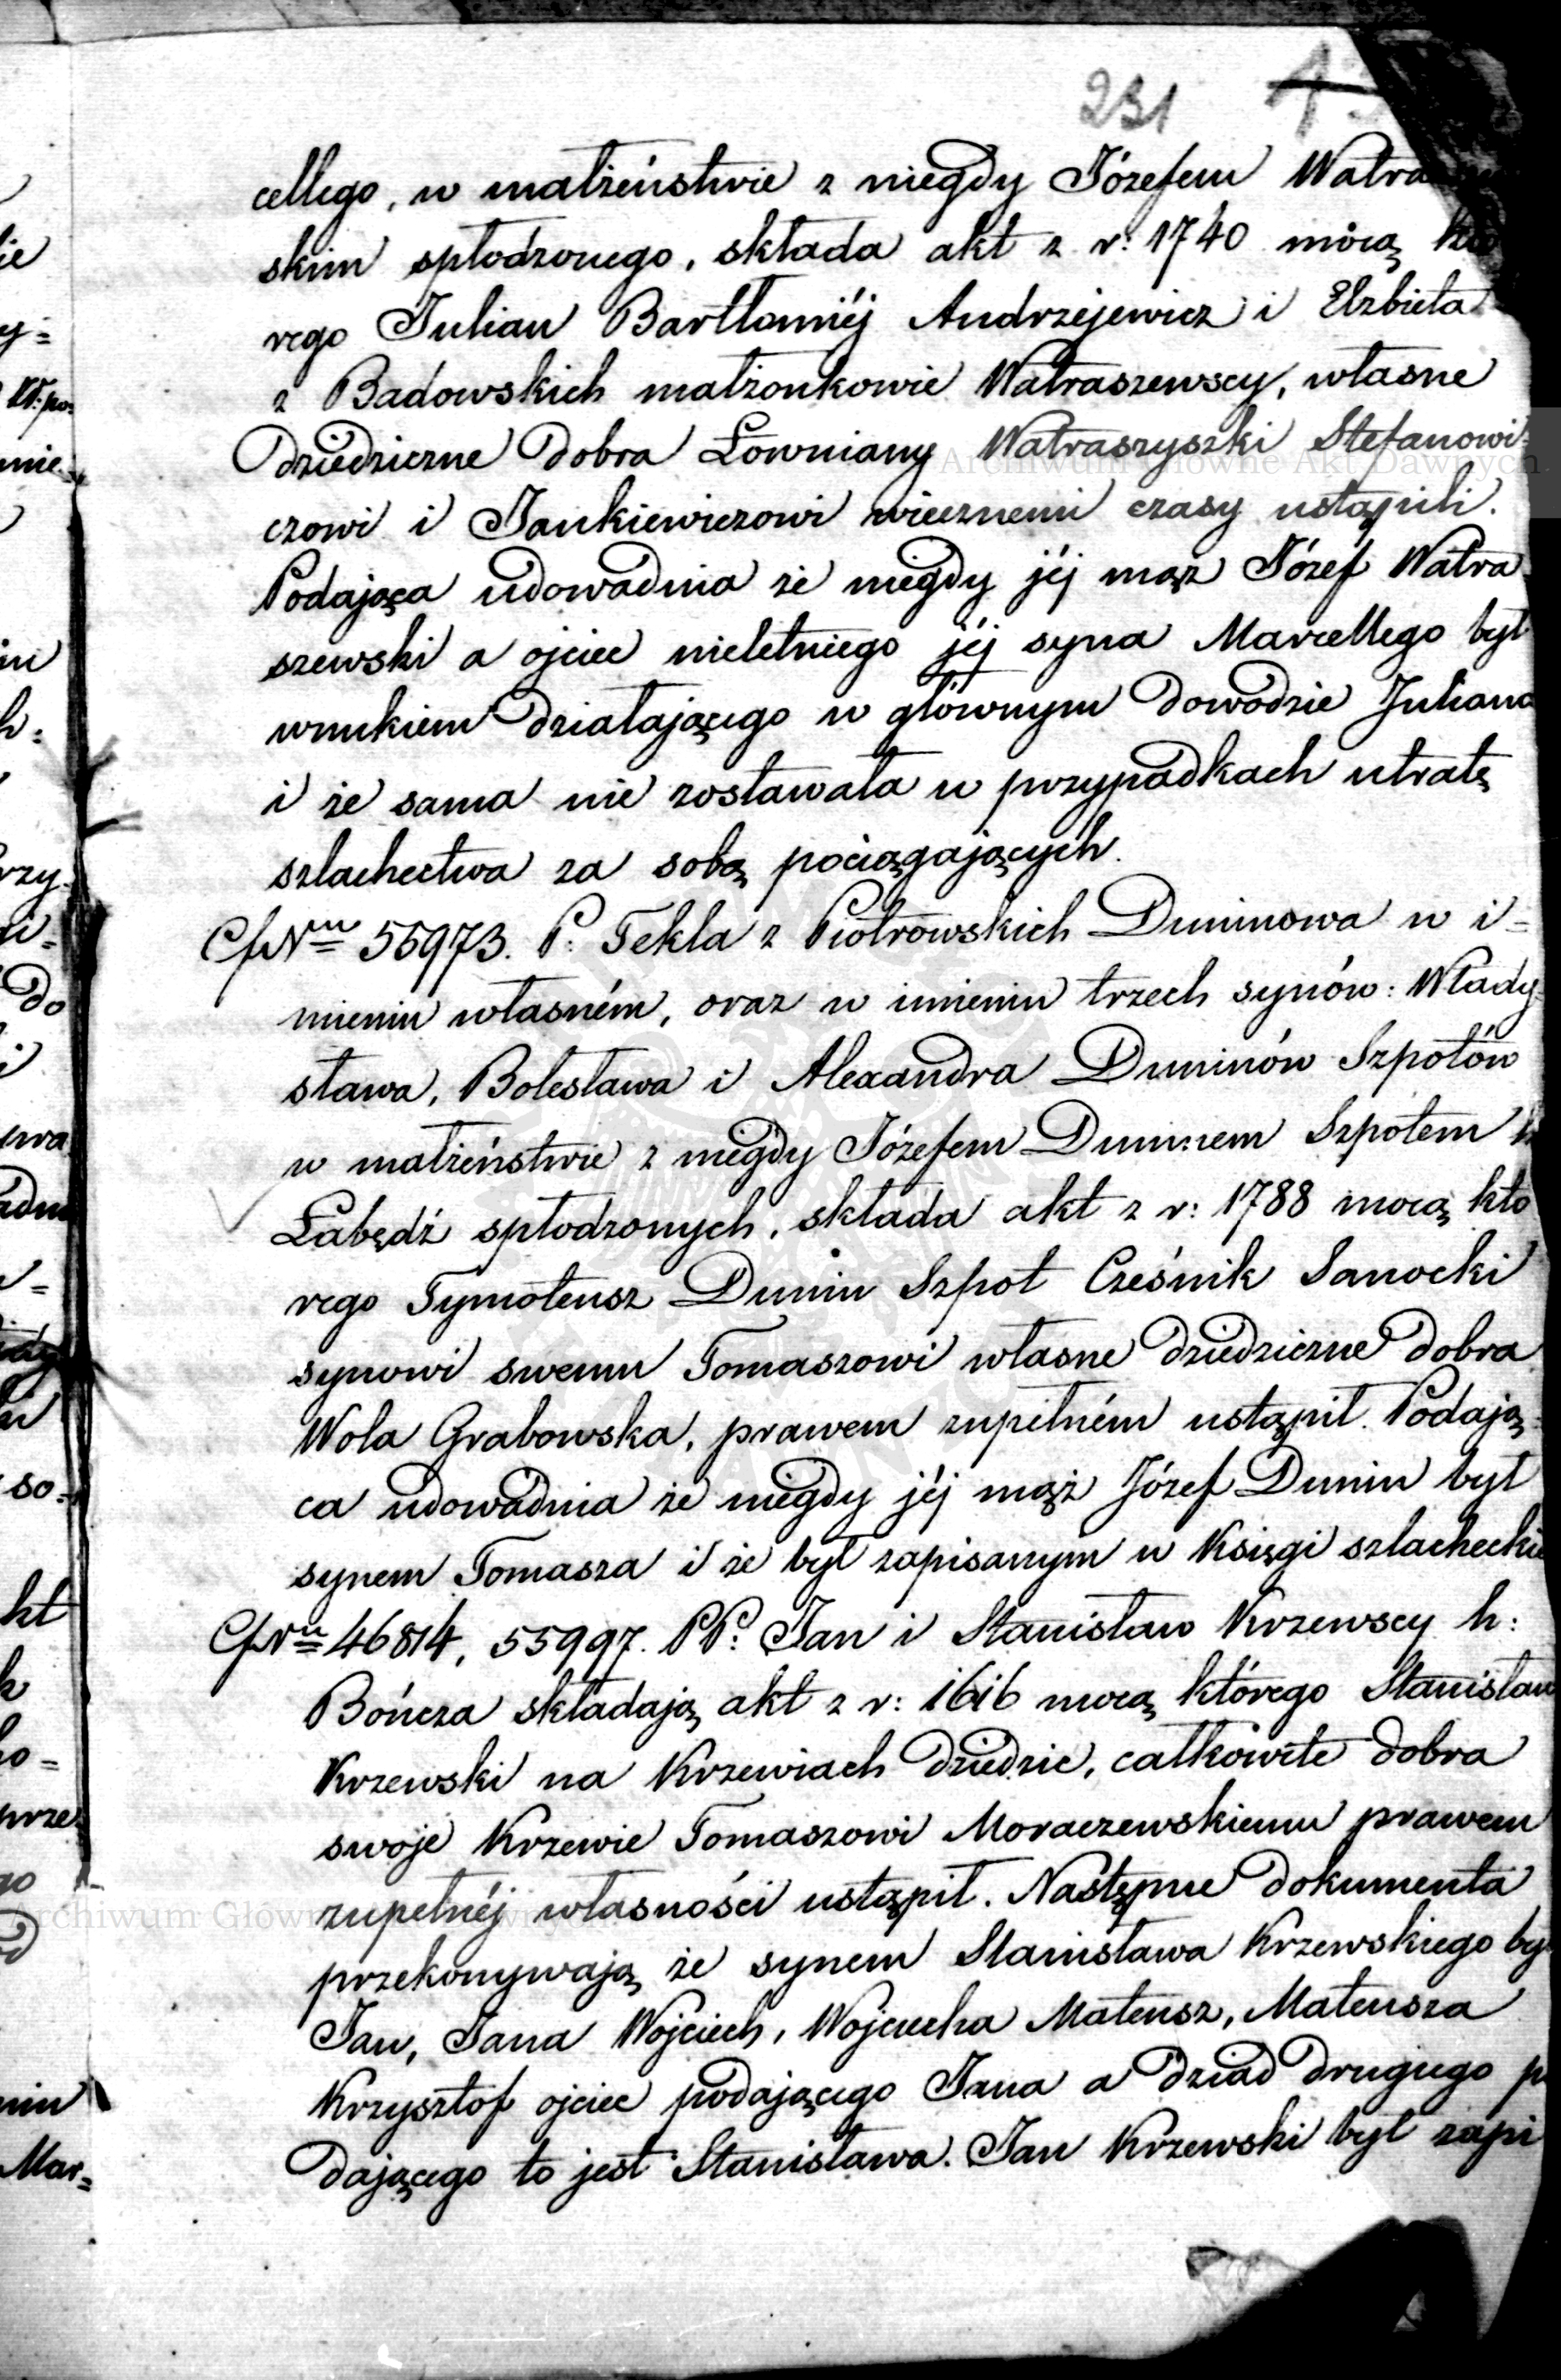 231
cellego, w małżeństwie z niegdy Józefem Watra
skim spłodzonego, składa akt z r: 1740 mocą
rego Julian Bartłomiéj Andrzejewicz i Elzbieta
z Badowskich małżonkowie Watraszewscy, własne
dziedziczne dobra Łowniany Watraszyszki Stefanowi=
czowi i Jankiewiczowi wiecznemi czasy ustąpili.
Podająca udowadnia że niegdy jéj mąż Józef Watra
szewski a ojciec nieletniego jéj syna Marcellego był
wnukiem działającego w głównym dowodzie Juliana
i że sama nie zostawała w przypadkach utratę
szlachectwa za sobą pociągających.
55973. P: Tekla z Piotrowskich Duninowa w i=
mieniu własném, oraz w imieniu trzech synów: Włady
sława, Bolesława i Alexandra Duninów Szpotów
w małżeństwie z niegdy Józefem Duninem Szpotem h
Łabędź spłodzonych, składa akt z r: 1788 mocą któ
rego Tymoteusz Dunin Szpot Cześnik Sanocki
synowi swemu Tomaszowi własne dziedziczne dobra
Wola Grabowska, prawem zupełném ustąpił. Podają=
ca udowadnia że niegdy jéj mąż Józef Dunin był
synem Tomasza i że był zapisanym w Księgi szlacheckie
46814, 55997. PP: Jan i Stanisław Krzewscy h:
Bończa składają akt z r: 1616 mocą którego Stanisław
Krzewski na Krzewiach dziedzic, całkowite dobra
swoje Krzewie Tomaszowi Moraczewskiemu prawem
zupełnéj własności ustąpił. Następne dokumenta
przekonywają że synem Stanisława Krzewskiego był
Jan, Jana Wojciech, Wojciecha Mateusz, Mateusza
Krzysztof ojciec podającego Jana a dziad drugiego p
dającego to jest Stanisława. Jan Krzewski był zapi
Archiwum Główne Akt Dawnych